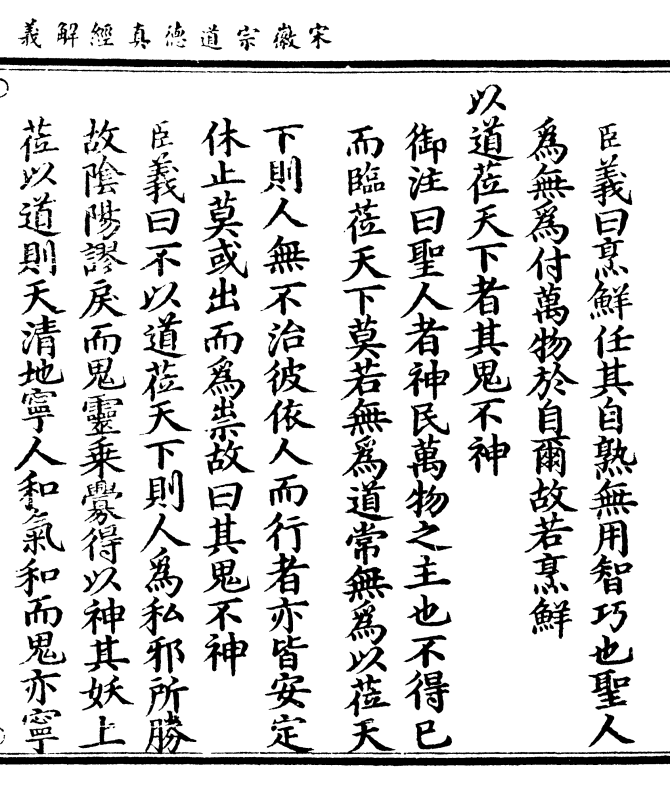 宋徽宗道德真經解義
臣義曰烹鮮任其自熟無用智巧也聖人
爲無爲付萬物於自爾故若烹鮮
以道莅天下者其鬼不神
御注曰聖人者神民萬物之主也不得已
而臨莅天下莫若無爲道常無爲以莅天
下則人無不治彼依人而行者亦皆安定
休止莫或出而爲祟故曰其鬼不神
臣義曰不以道莅天下則人爲私邪所勝
故陰陽謬戾而鬼靈乘釁得以神其妖上
莅以道則天清地寧人和氣和而鬼亦寧